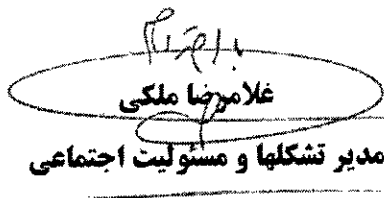 با احترام
غلامرضا ملکی
مدیر تشکلها و مسئولیت اجتماعی